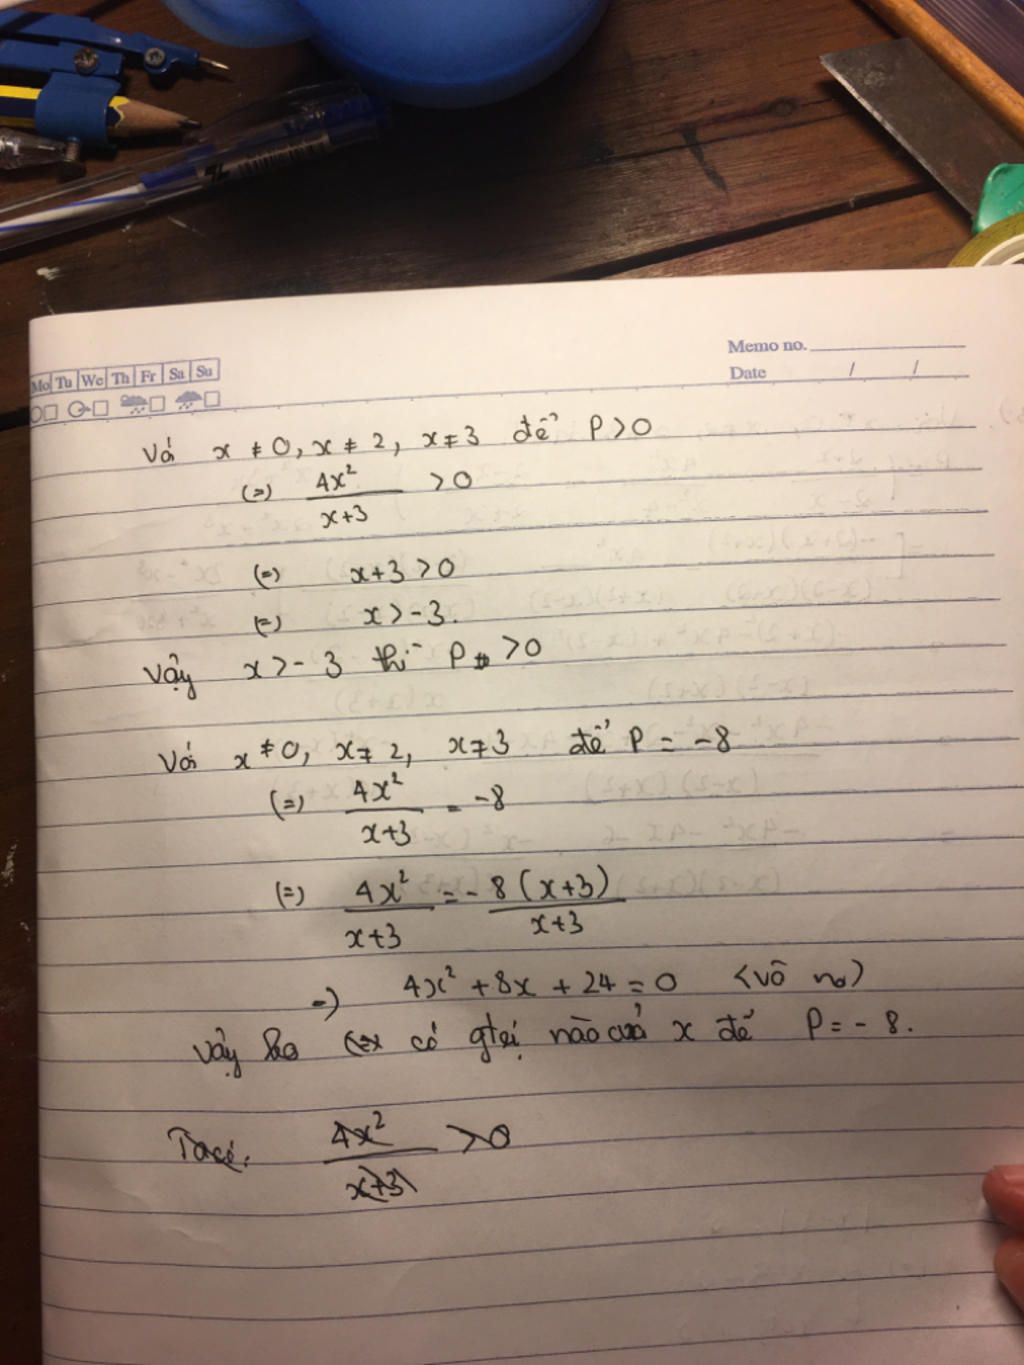 Memo no.
Mo Tu We Th Fr Sa Su
Date / /
Với x ≠ 0, x ≠ 2, x ≠ 3 để P > 0
(=) 4x²/x+3 > 0
(=) x+3 > 0
(=) x > -3.
Vậy x > - 3 thì P > 0
Với x ≠ 0, x ≠ 2, x ≠ 3 để P = -8
(=) 4x²/x+3 = -8
(=) 4x²/x+3 = - 8(x+3)/x+3
=) 4x² + 8x + 24 = 0 (vô no)
Vậy ko có gtrị nào của x để P = - 8.
Ta có: 4x²/x+3 > 0